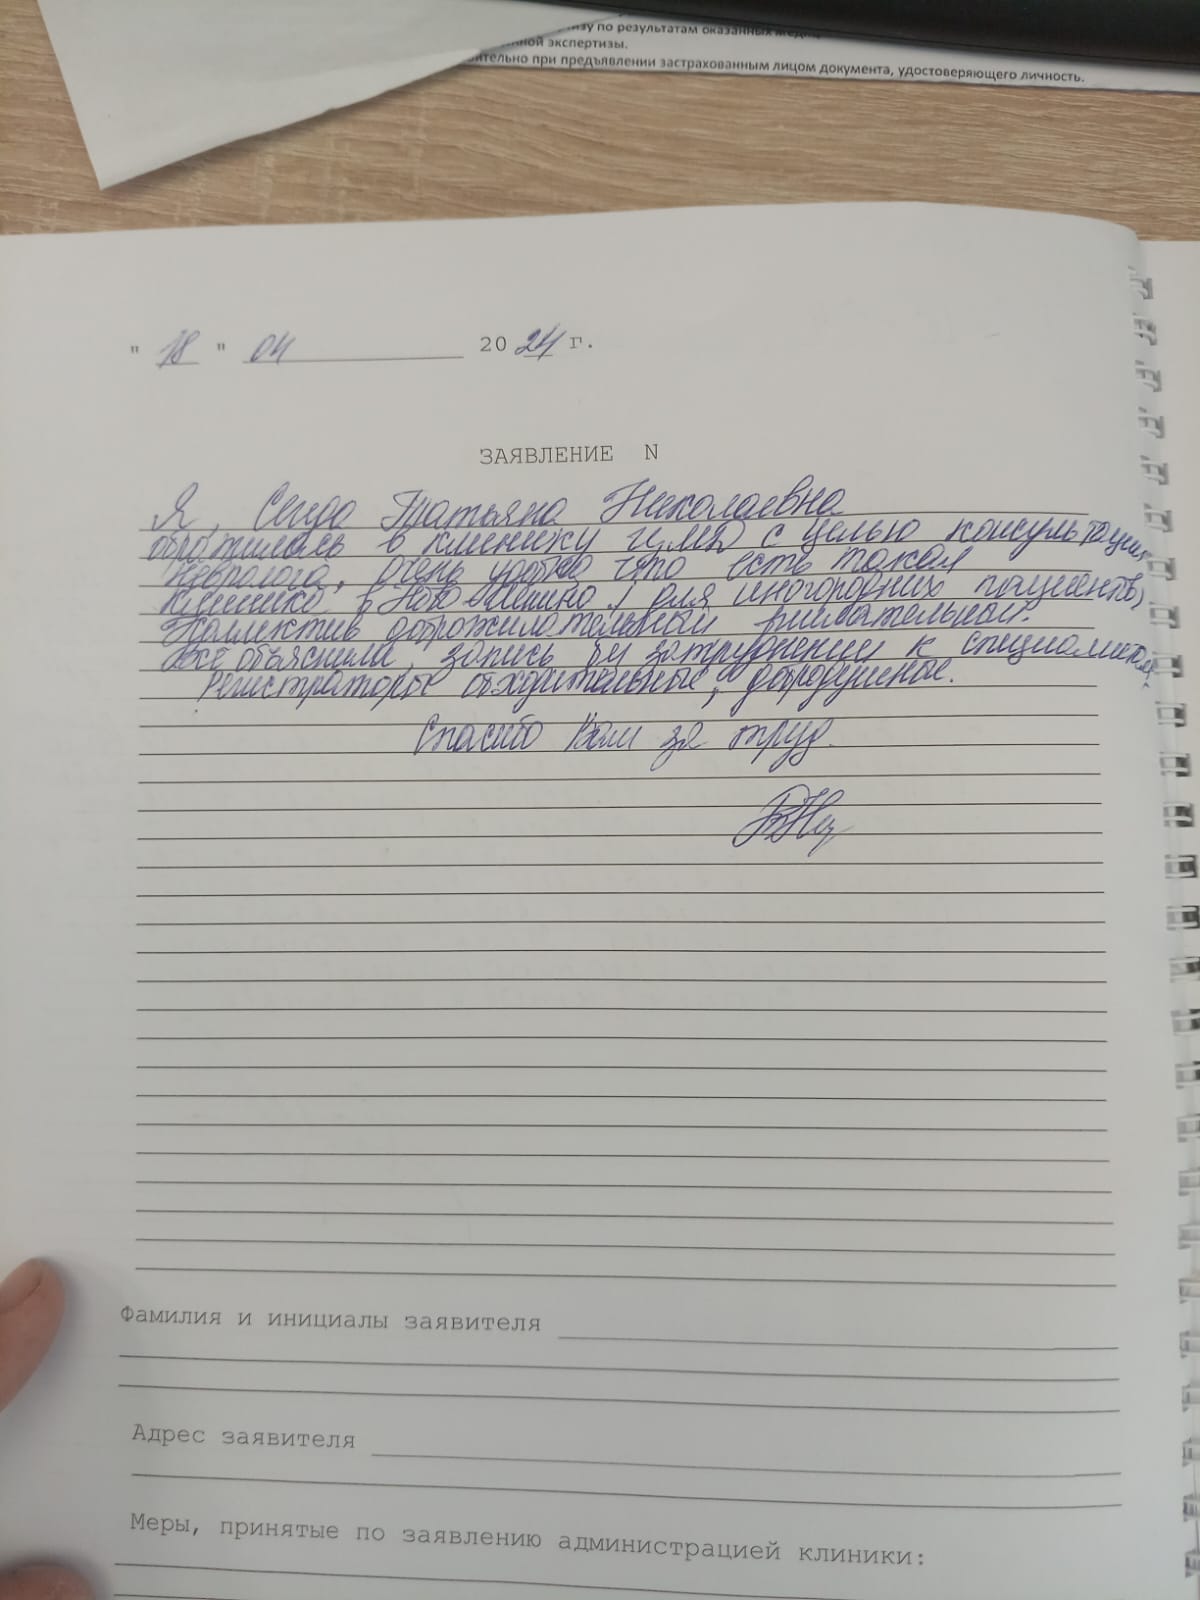 по результатам оказанных
экспертизы.
при предъявлении застрахованным лицом документа, удостоверяющего личность.
" 18 " 04 2024 г.
ЗАЯВЛЕНИЕ N
Я, Татьяна Николаевна
обратилась в клинику с целью консультации
невролога, очень удобно что есть такая
клиника в для иногородних пациентов,
Коллектив доброжилательный внимательный.
Всё объяснили, запись к специалистам.
Регистраторы обходительные, добродушные.
Спасибо Вам за труд.
Фамилия и инициалы заявителя
Адрес заявителя
Меры, принятые по заявлению администрацией клиники: